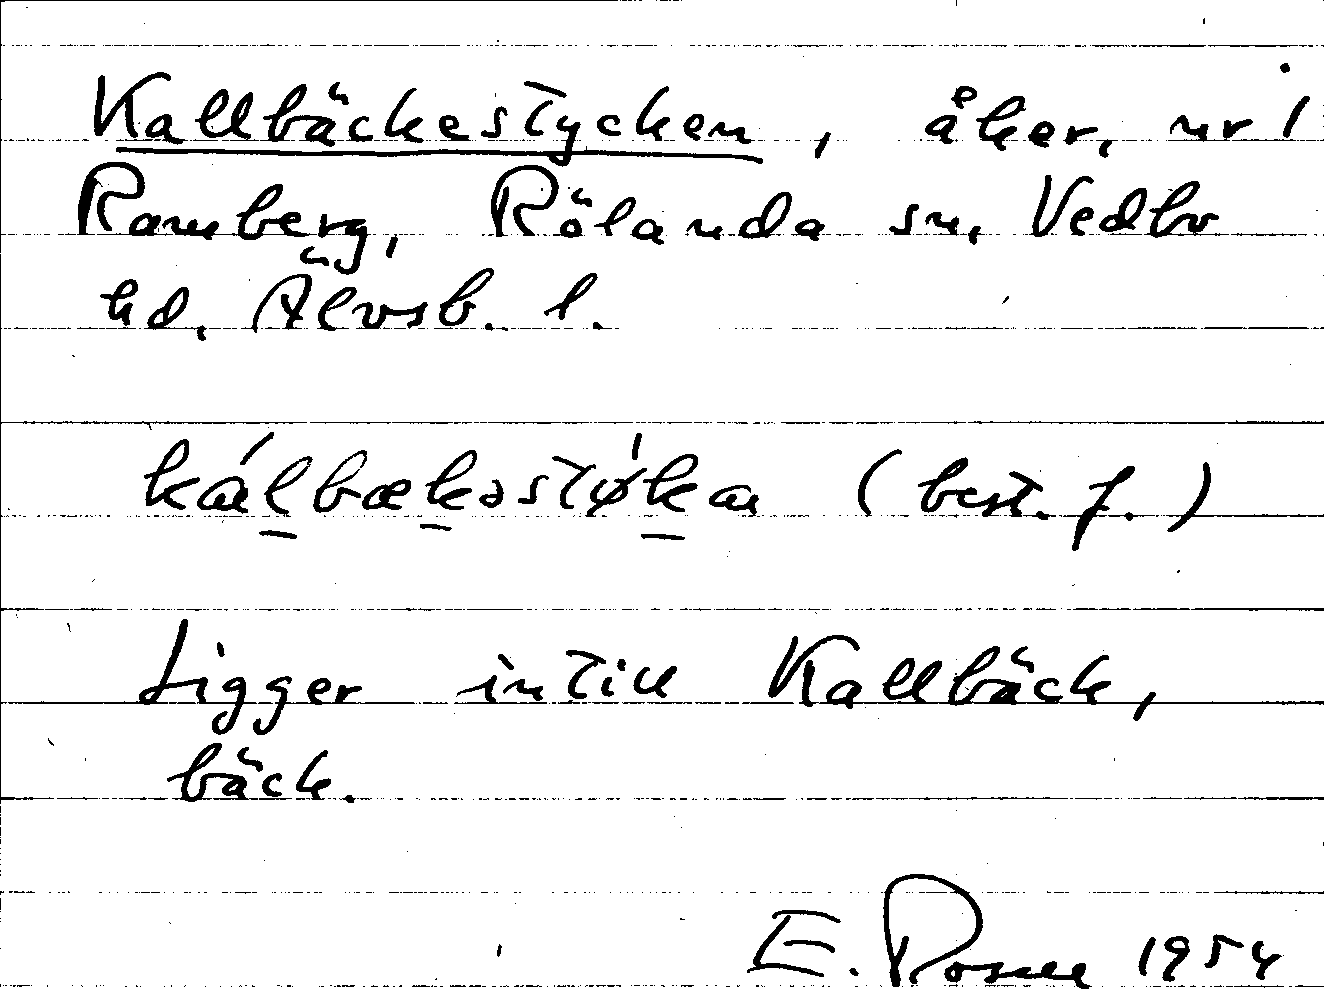 Kallbäckestycken, åker, nr 1
Ramberg, Rölanda sn, Vedbo
hd, Älvsb. l.
kálbækəstø̍kan (best. f.)
Ligger intill Kallbäck,
bäck.
E. 1954